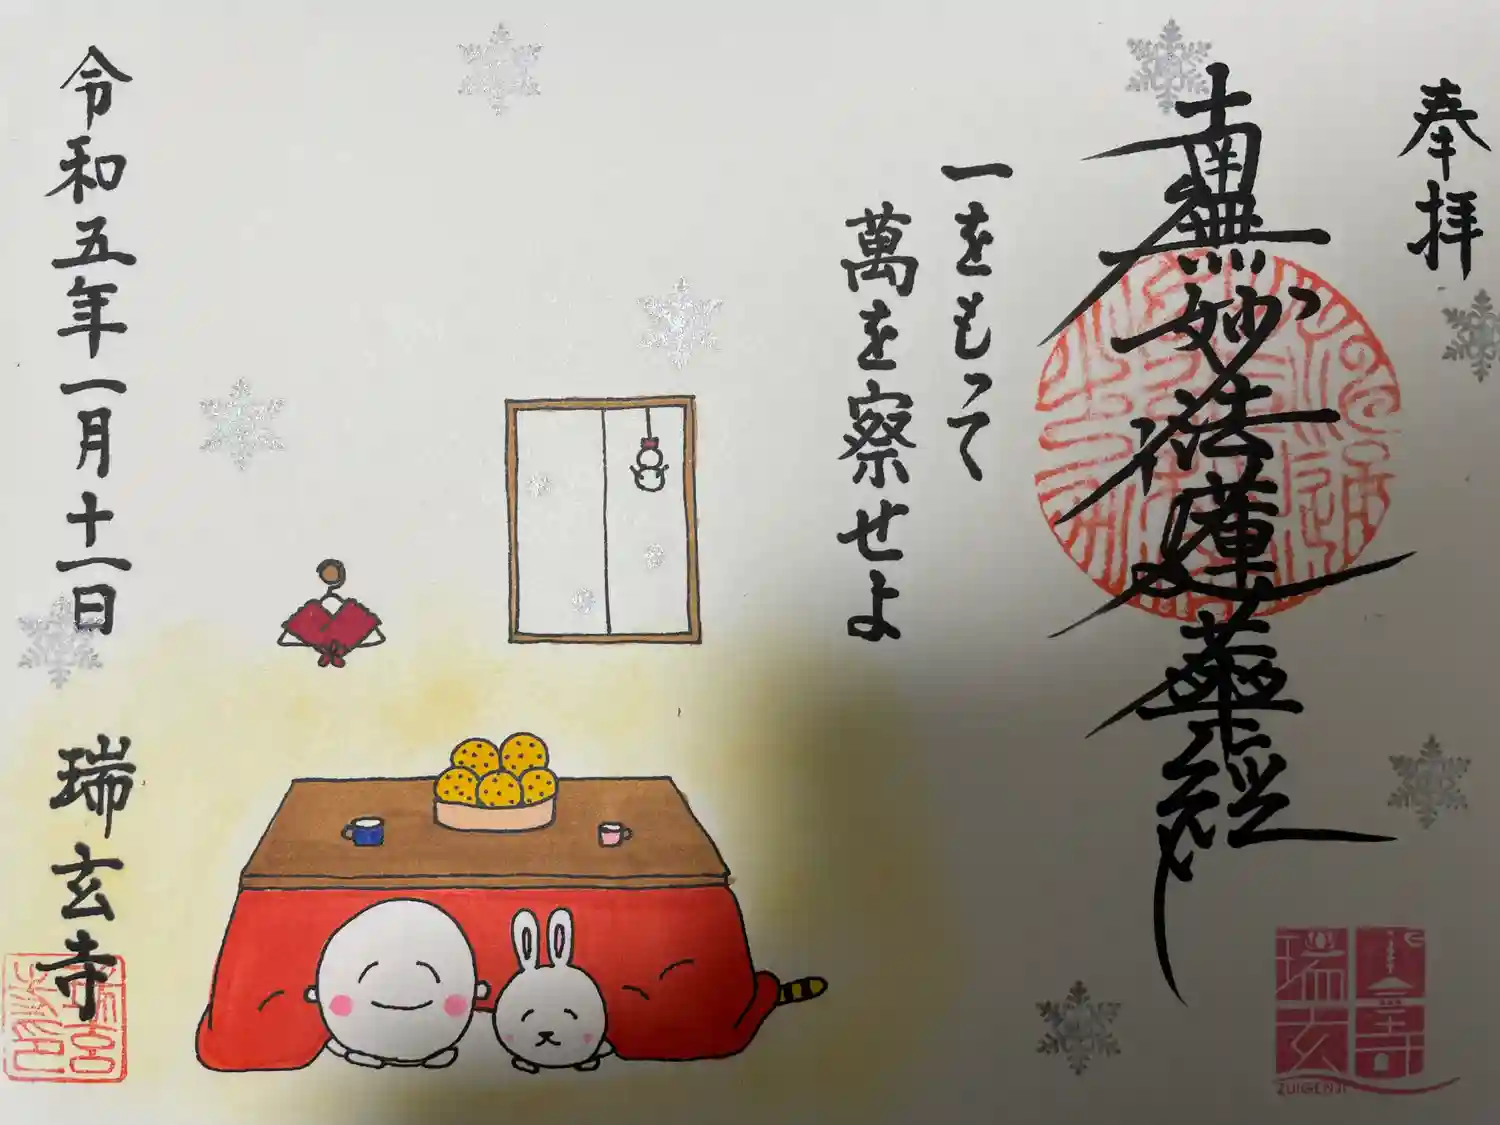 奉拝
南無妙法蓮華經
一をもって
萬を察せよ
令和五年一月十一日 瑞玄寺
瑞玄寺
ZUIGENJI